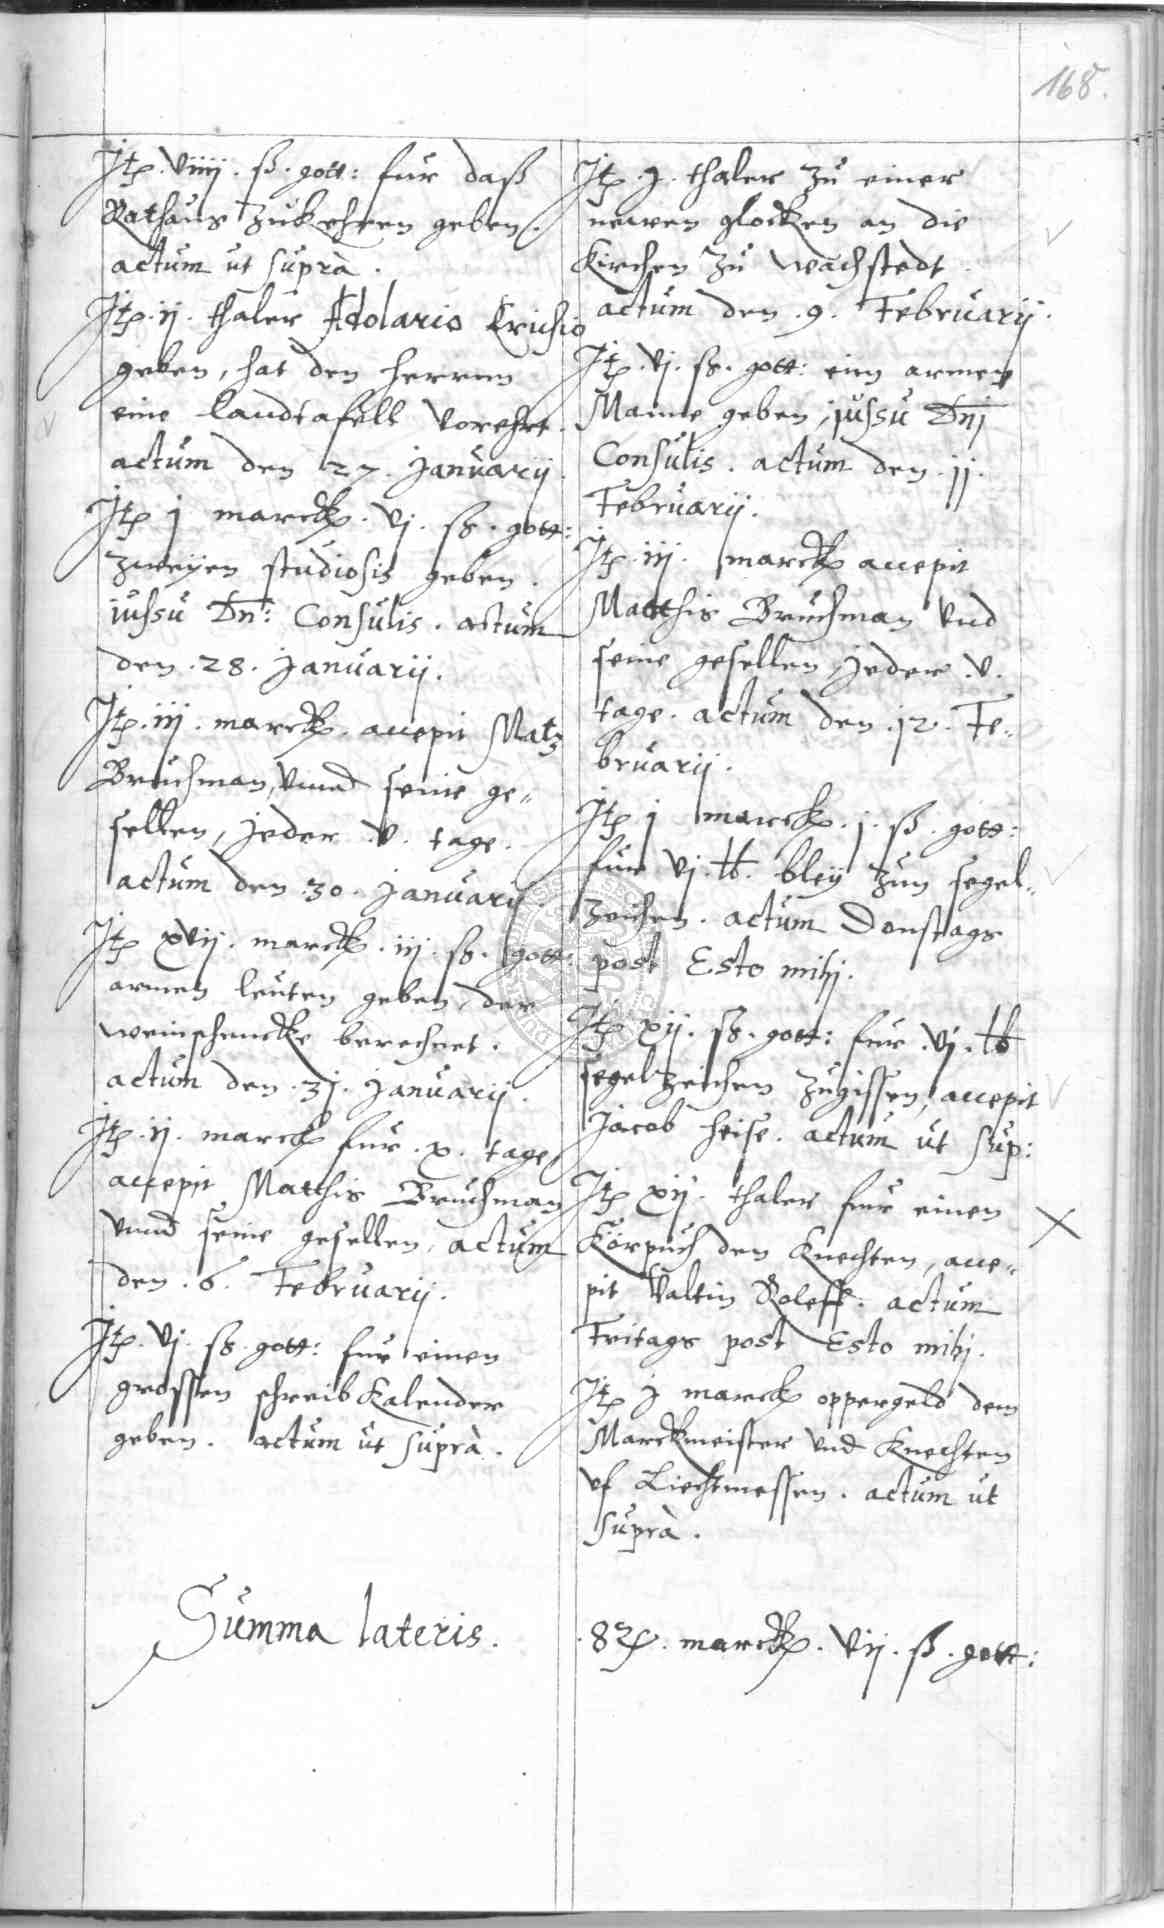 168.
Itē. viiij. ß. gott: fur daß
Rathaus zukehren geben.
actum ut suprà.
Itē. ij. thaler Adolario Erichio
geben, hat den herrnn
eine landtafell vorehrt.
actum den 27. Januarij.
Itē j marck. vj. ß. gott:
zweyen studiosis geben.
iussu Dn: Consulis. actum
den. 28. Januarij.
Itē. iij. marck. accepit Matz
Bruchman, vnnd seine ge„
sellen, jeder. v. tage.
actum den. 30. Januarij.
Itē xvij. marck. iij. ß. gott:
armen leuten geben, der
weinschencke berechnet.
actum den. 31. Januarij.
Itē. ij. marck fur. x. tage,
accepit Matthis Bruchman
vnnd seine gesellen, actum
den. 6. Februarij.
Itē. vj. ß. gott: fur einen
grossen schreib Kalender
geben. actum ut suprà.
Itē. j. thaler zu einer
newen glocken an die
Kirchen zu wachstedt.
actum den. 9. Februarij.
Itē. vj. ß. gott: eim armen
Manne geben, iussu Dnj
Consulis. actum den. 11.
Februarij.
Itē. iij. marck accepit
Matthis Bruchman vnd
seine gesellen, jeder. v.
tage. actum den. 12. Fe„
bruarij.
Itē j marck. j. ß. gott:
fur vj. ℔. bley zun segel„
zeichen. actum Donstags
post Esto mihj.
Itē xij. ß. gott: fur. vj. ℔
segelzeichen zugissen, accepit
Jacob heise. actum ut sup:
Itē xij. thaler fur einen
Körpuch den Knechten, acce„
pit Valtin Roleff. actum
Fritags post Esto mihj.
Itē j marck oppergeld dem
Marckmeister vnd Knechten
vf Liechtmessen. actum ut
suprà.
Summa lateris. marck. vij. ß. gott: